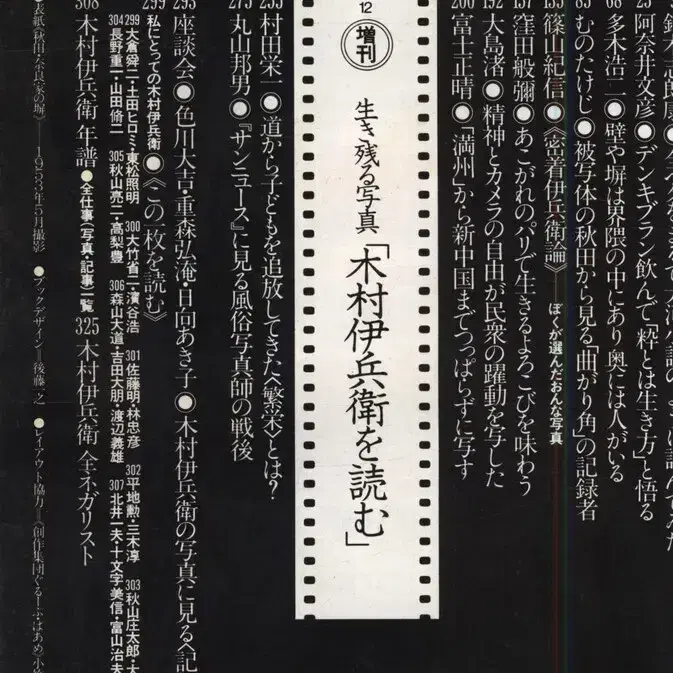 25 阿奈井文彦◉デンキブラン飲んで「粋とは生き方」と悟る
68 多木浩二◉壁や塀は界隈の中にあり奥には人がいる
85 むのたけじ◉被写体の秋田から見る「曲がり角」の記録者
篠山紀信◉《密着伊兵衛論》——ぼくが選んだおんな写真
157 窪田般彌◉あこがれのパリで生きるよろこびを味わう
192 大島渚◉精神とカメラの自由が民衆の躍動を写した
200 富士正晴◉「満州」から新中国までつっぱらずに写す
12
増刊
生き残る写真「木村伊兵衛を読む」
村田栄一◉道から子どもを追放してきた〈繁栄〉とは?
275 丸山邦男◉『サンニュース』に見る風俗写真師の戦後
295 座談会◉色川大吉・重森弘淹・日向あき子◉木村伊兵衛の写真に見る〈記
299 私にとっての木村伊兵衛◉《この一枚を読む》
299 大倉舜二・土田ヒロミ・東松照明 300 大竹省二・濱谷浩 301 佐藤明・林忠彦 302 平地勲・三木淳 303 秋山庄太郎・
304 長野重一・山田脩二 305 秋山亮二・高梨豊 306 森山大道・吉田大朋・渡辺義雄 307 北井一夫・十文字美信・富山治夫
308 木村伊兵衛 年譜◉全仕事〈写真・記事〉一覧 325 木村伊兵衛 全ネガリスト
表紙《秋田/奈良家の場》——1953年5月撮影◉ブックデザイン=後藤一之◉レイアウト協力=《創作集団ぐるーぷ・ぱあめ